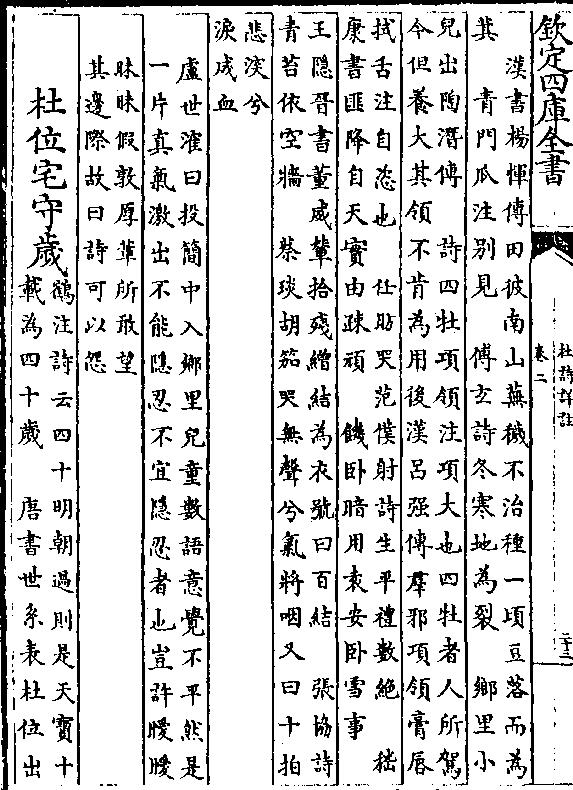 欽定四庫全書
杜詩詳註
卷二
二十三
漢書楊惲傳田彼南山蕪穢不治種一頃豆落而為
萁　青門瓜注别見　傅玄詩冬寒地為裂　鄉里小
兒出陶潛傳　詩四牡項領注項大也四牡者人所駕
今但養大其領不肯為用後漢吕强傳羣邪項領膏唇
拭舌注自恣也　任昉哭范僕射詩生平禮數絶　嵇
康書匪降自天實由疎頑　饑卧暗用袁安卧雪事
王隱晉書董威輦拾殘繒結為衣號曰百結　張協詩
青苔依空牆　蔡琰胡笳哭無聲兮氣將咽又曰十拍
悲深兮
淚成血
盧世㴶曰投簡中入鄉里兒童數語意覺不平然是
一片真氣激出不能隱忍不宜隱忍者也豈許曖曖
昧昧假敦厚輩所敢望
其邊際故曰詩可以怨
杜位宅守歲
鶴注詩云四十明朝過則是天寳十
載為四十歲　唐書世系表杜位出